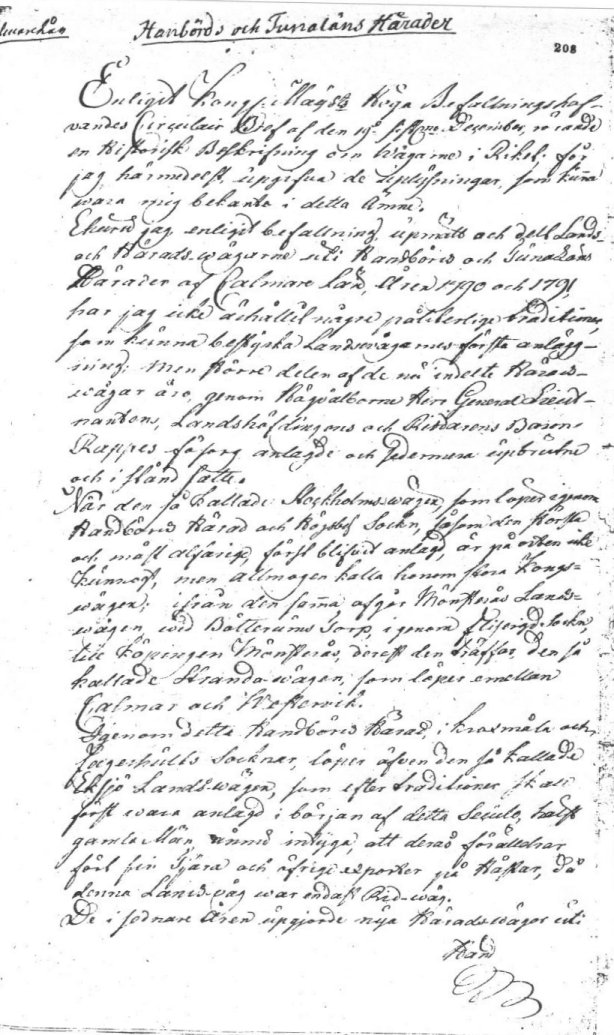 Hanbörds och Tunaläns Härader
208
Enligit Kongl. Maÿts Höga Befallningshaf-
vandes Circulair Bref af den sistl. December, rörande
en Historisk Beskrifning om Wägarne i Riket; för
jag härmedelst upgifva de uplysningar, som kunna
wara mig bekante i detta Ämne.
Ehuru jag enligit befallning, upmätt och delt Lands-
och Härads-wägarne uti Handbörds och Tunaläns
Härader af Calmare Län, Åren 1790 och 1791,
har jag icke ärhållit någre pålitelige traditioner,
som kunna bestyrka Landswägarnes första anlägg-
ning; men större delen af de nu indelte Härads-
wägar äro, genom Högvälborne Herr General Lieut-
nantens, Landshöfdingens och Riddarens Baron
Rappes försorg anlagde och sedermera upbrutne
och i stånd satte.
När den så kallade Stockholms-wägen, som löper igenom
Handbörds Härad och Högsby Sockn, såsom den största
och mäst alfarige, först blifvit anlagd, är på orten icke
kunnogt, men allmogen kalla honom stora Kongs-
wägen; ifrån den samma afgår Mönsterås Lands-
wägen, wid Bötterums Torp, igenom Fliseryds Sockn,
till Köpingen Mönsterås, derest den träffar den så
kallade Strandawägen, som löper emellan
Calmar och Westerwik.
Igenom detta Handbörds Härad, i Kråxmåla och
Fagerhults Socknar, löper äfven den så kallade
Eksjö Landswägen, som efter traditioner skall
först wara anlagd i början af detta Seculo, hälst
gamla Män ännu intyga, att deras föräldrar
fört sin Tjära och öfrige exporter på Hästar, då
denna Landswäg war endast Rid-wäg.
De i sednare Åren upgjorde nya Häradswägor uti
Hand